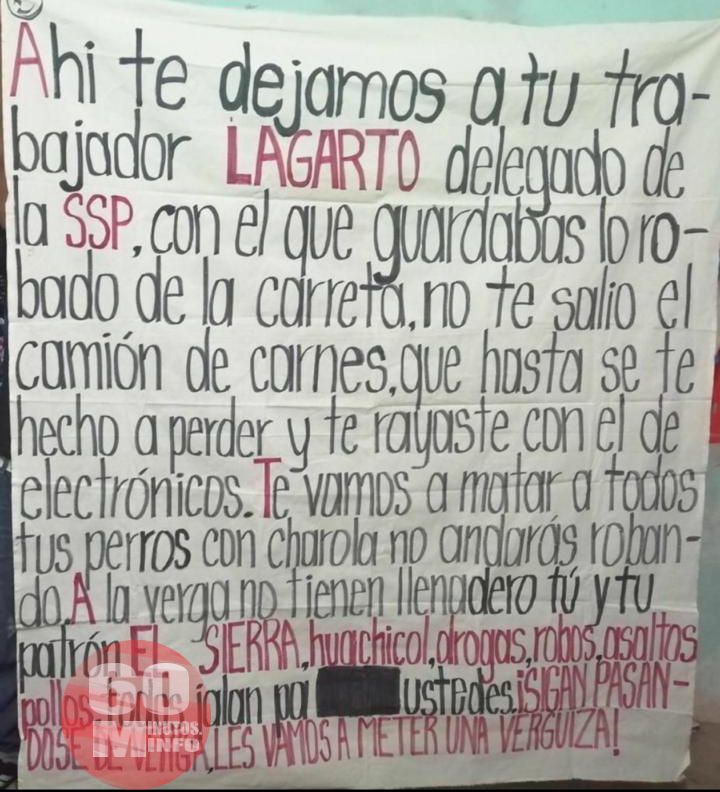 Ahi te dejamos a tu tra-
bajador LAGARTO delegado de
la SSP, con el que guardabas lo ro-
bado de la carreta, no te salio el
camión de carnes, que hasta se te
hecho a perder y te rayaste con el de
electrónicos. Te vamos a matar a todos
tus perros con charola no andarás roban-
do. A la verga no tienen llenadero tú y tu
patrón El SIERRA, huachicol, drogas, robos, asaltos
pollos, todos jalan pa ustedes. ¡SIGAN PASAN-
DOSE DE VERGA, LES VAMOS A METER UNA VERGUIZA!
90
MINUTOS.
INFO